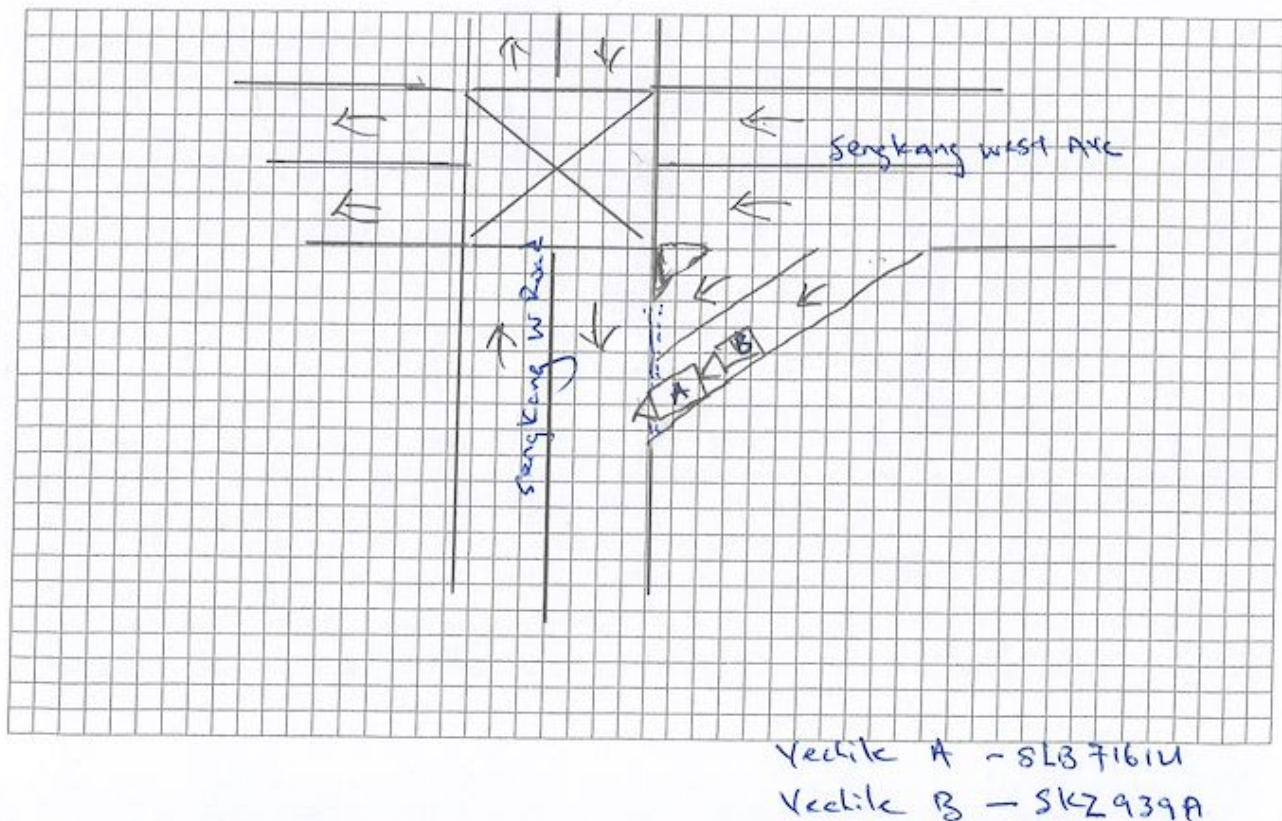 Sengkang west Ave
Sengkang W Road
B
A
Vechile A - SLB7161U
Vechile B - SKZ939A